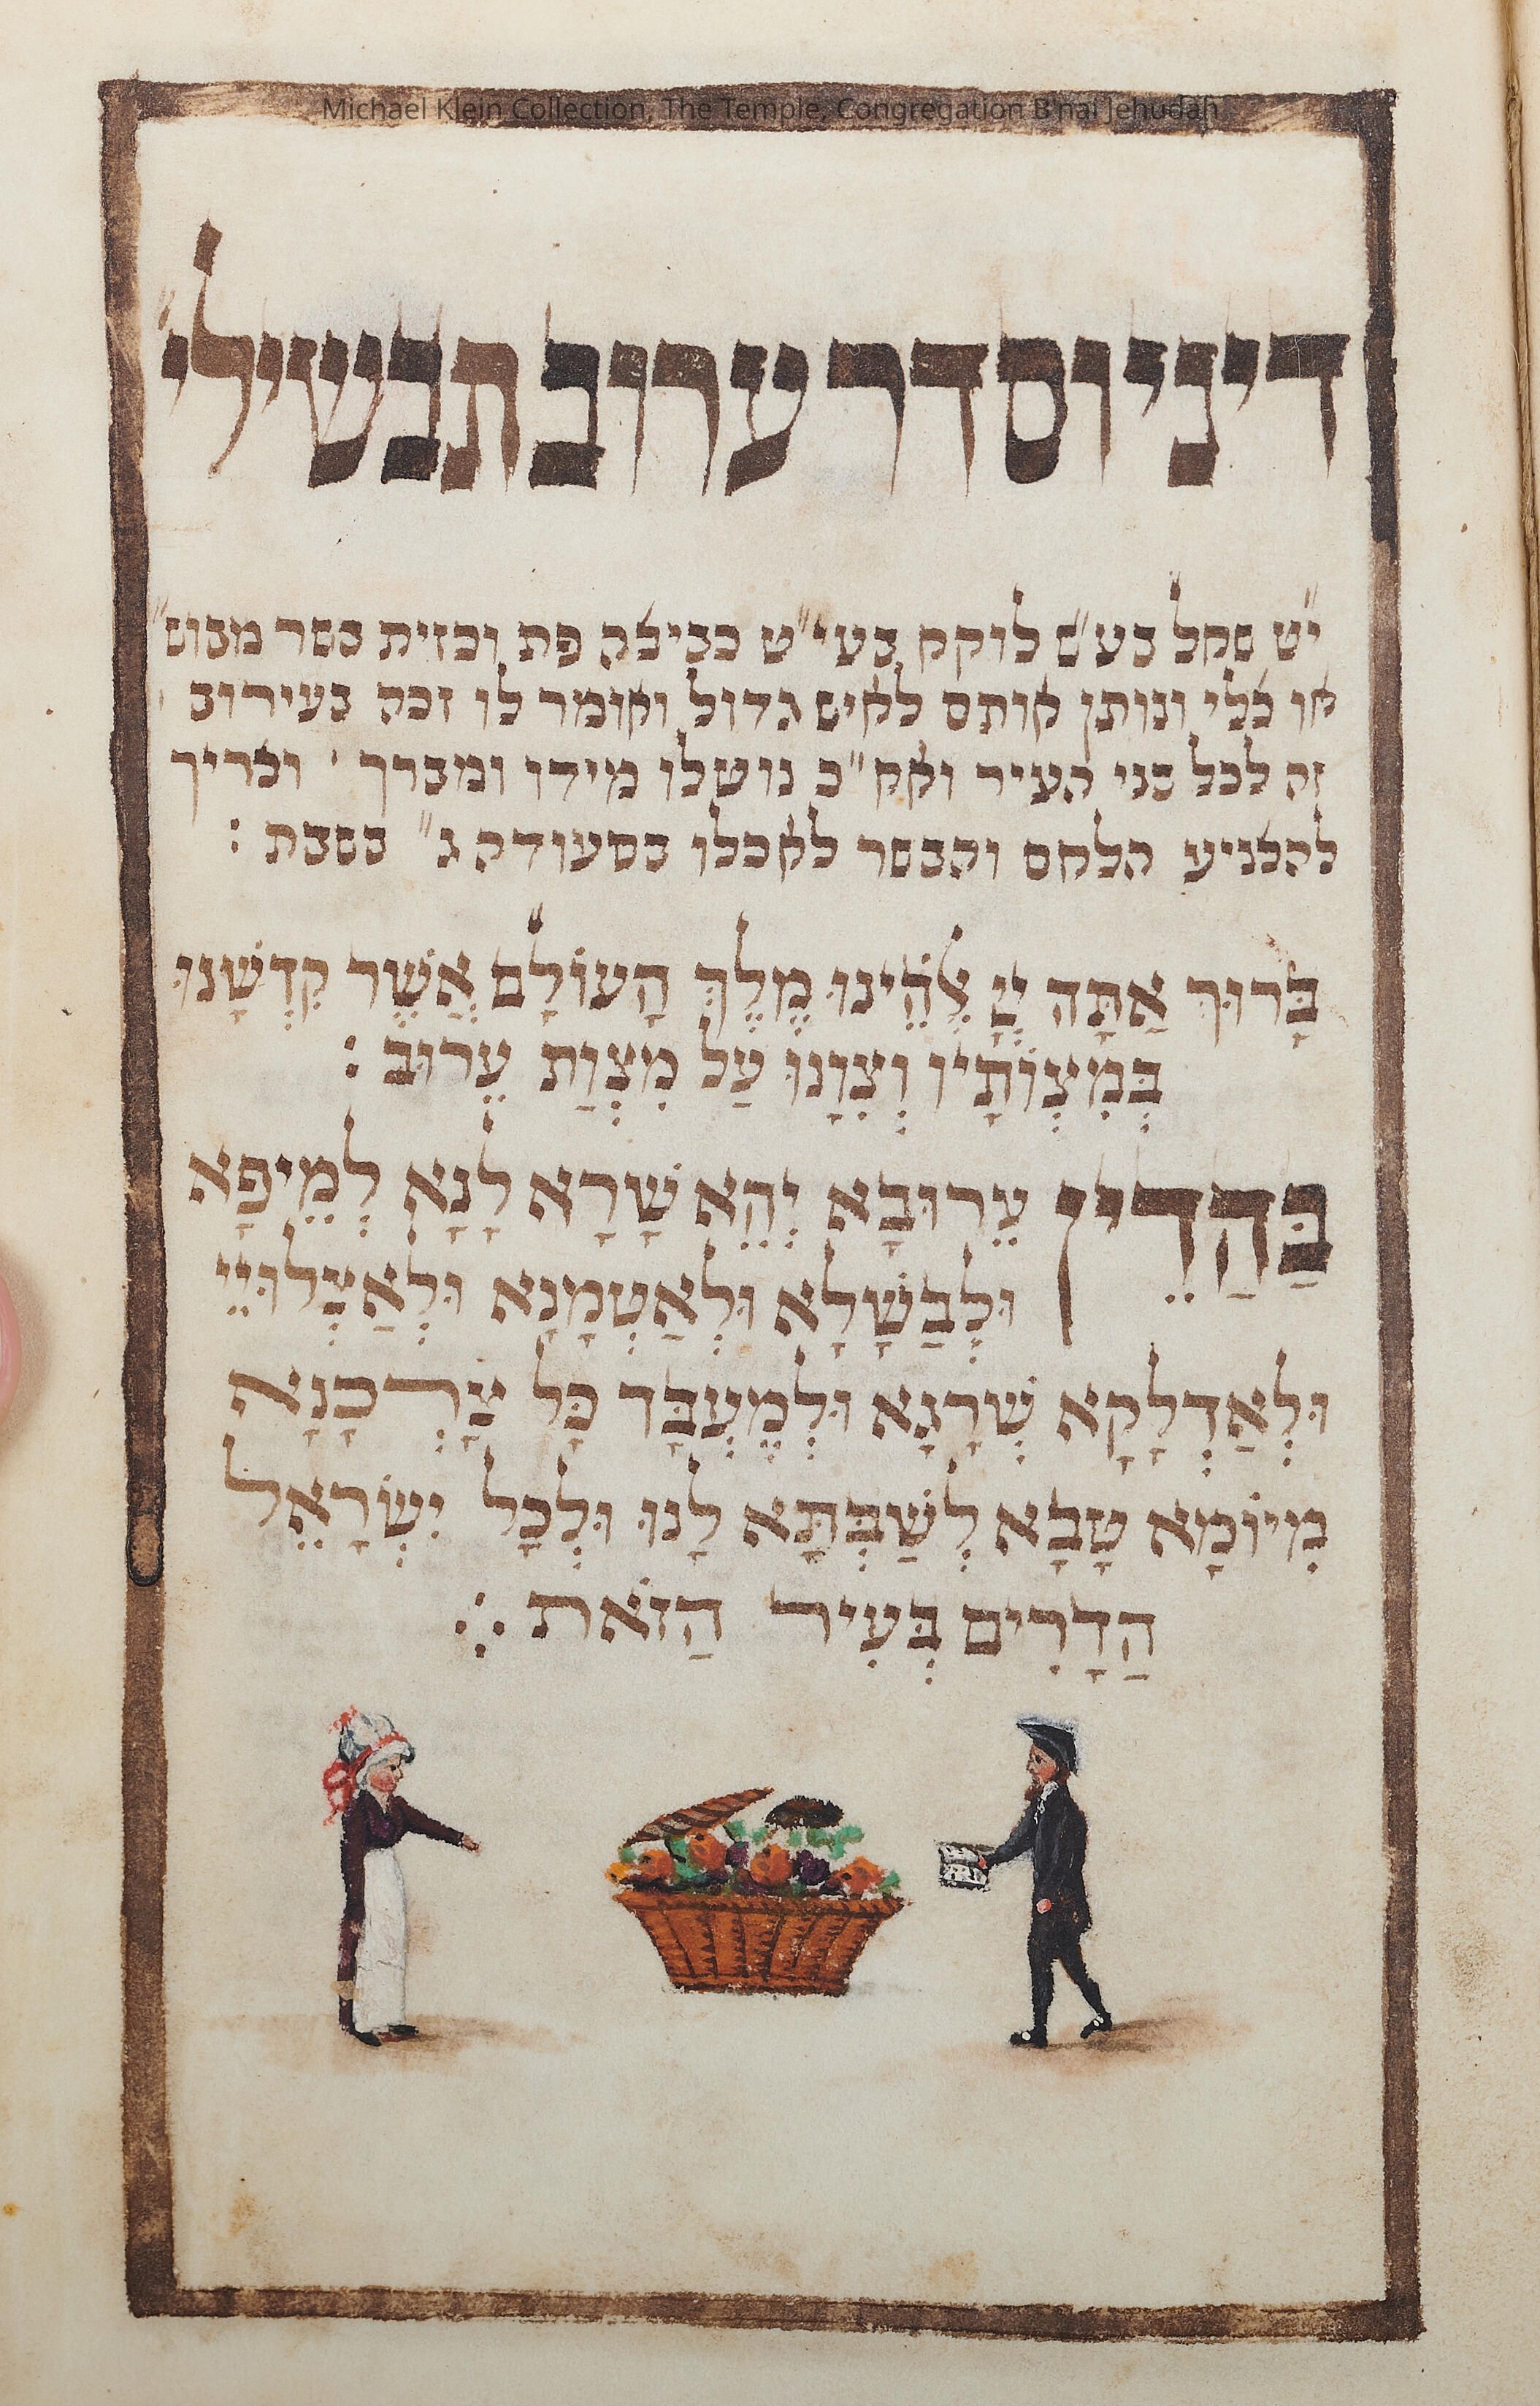 Michael Klein Collection, The Temple, Congregation B'nai Jehudah
דיני וסדר ערוב תבשילי״
י״ט שחל בע״ש לוקח בעי״ט כביצה פת וכזית בשר מבוש״
או צלי ונותן אותם לאיש גדול ואומר לו זכה בעירוב
זה לכל בני העיר ואח״כ נוטלו מידו ומברך ׳ וצריך
להצניע הלחם והבשר לאכלו בסעודה ג״ בשבת :
בָּרוּךְ אַתָּה יְיָ אֱלֹהֵינוּ מֶלֶךְ הָעוֹלָם אֲשֶׁר קִדְשָׁנוּ
בְּמִצְוֹתָיו וְצִוָנוּ עַל מִצְוַת עֵרוּב :
בַּהֲדֵין עֵרוּבָא יְהֵא שָׁרָא לָנָא לְמֵיפָא
וּלְבַשָׁלָא וּלְאַטְמָנָא וּלְאַצְלוּיֵי
וּלְאַדְלָקָא שְׁרָגָא וּלְמֶעְבָּד כָּל צָרְכָנָא
מִיוֹמָא טָבָא לְשַׁבְּתָּא לָנוּ וּלְכָל יִשְׂרָאֵל
הַדָרִים בְּעִיר הַזֹאת :